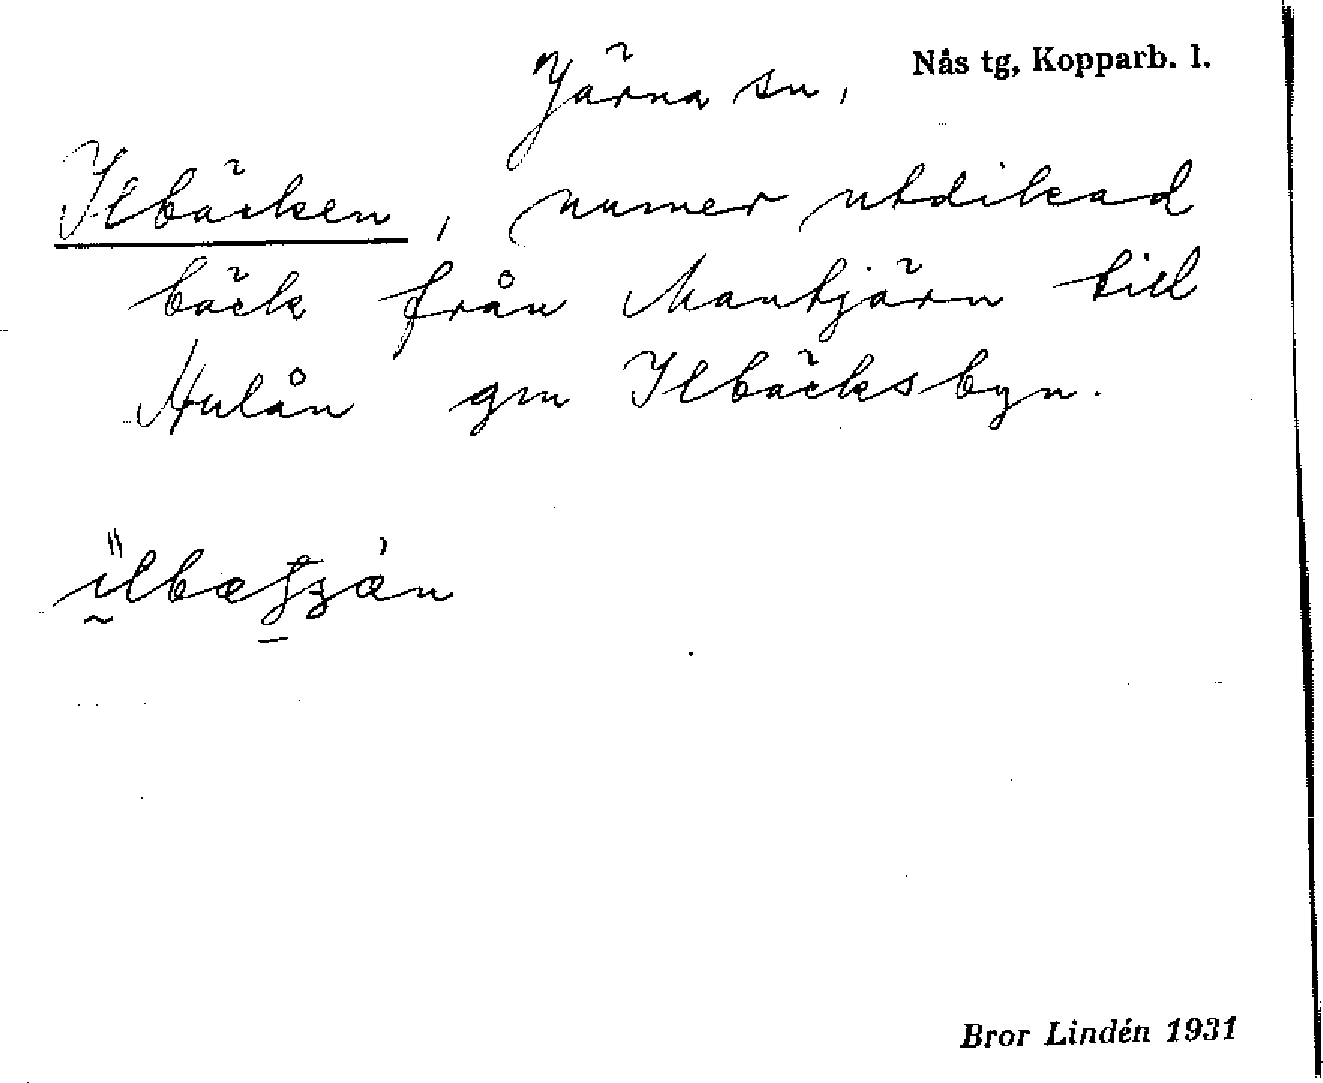 Järna sn, Nås tg, Kopparb. l.
Ilbäcken, numer utdikad
bäck från Mantjärn till
Hulån gm Ilbäcksbyn.
Bror Lindén 1931